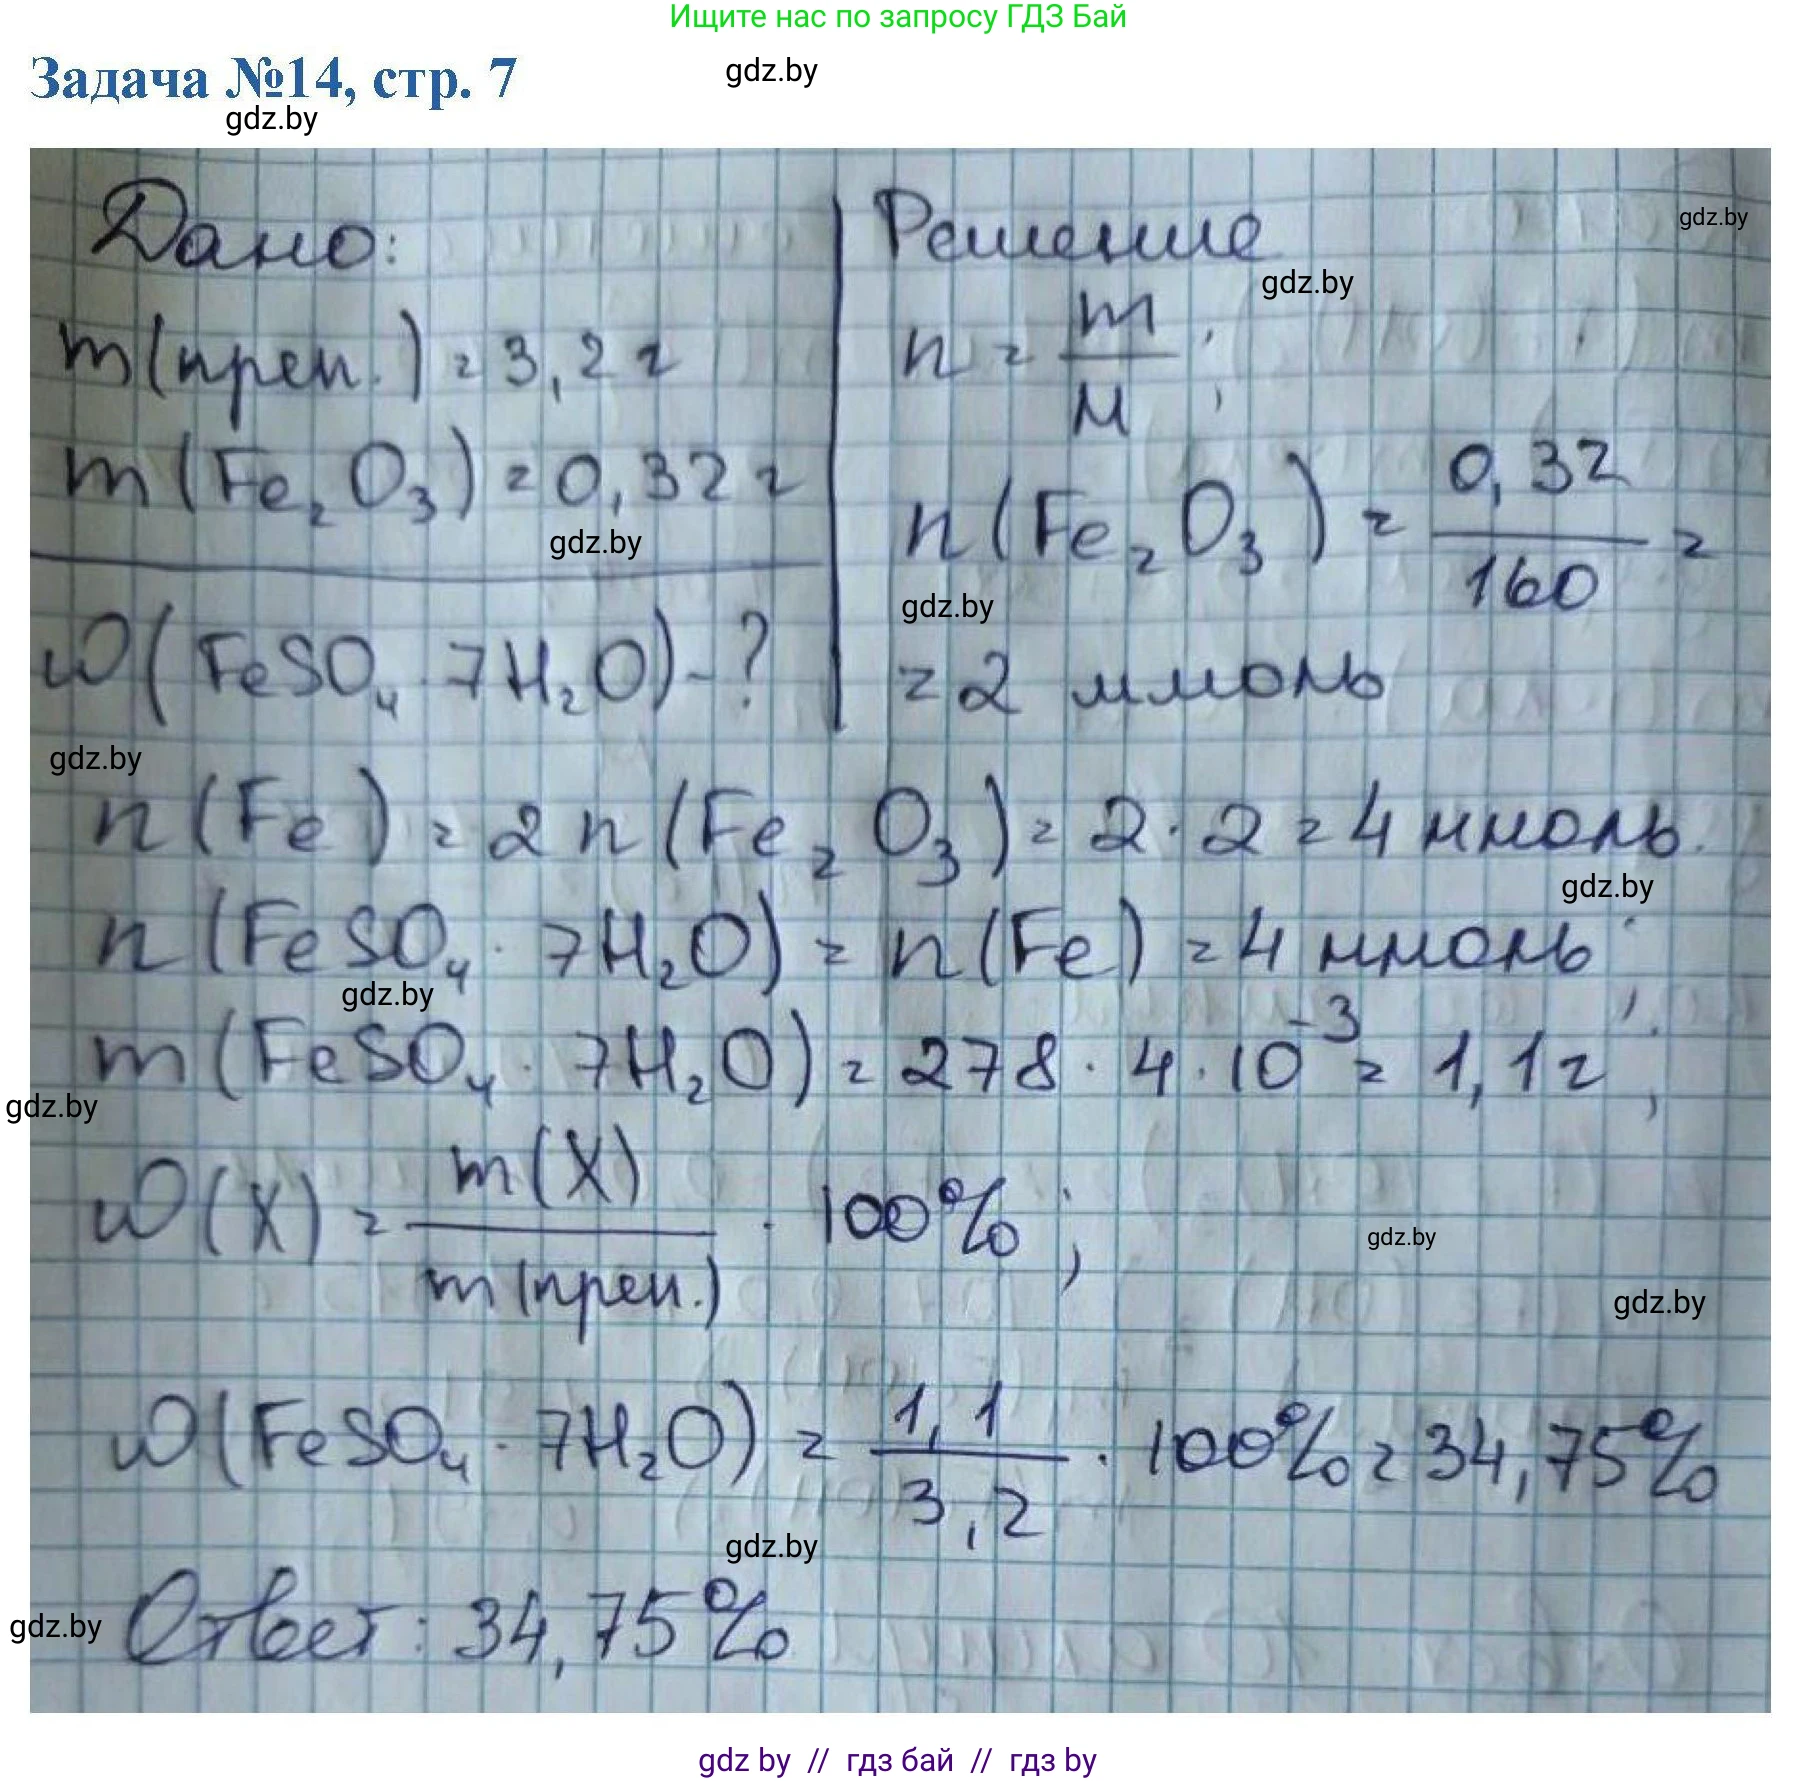 Ищите нас по запросу ГДЗ Бай
Задача №14, стр. 7
gdz.by
gdz.by
Дано:
m(преп.) = 3,2 г
m(Fe₂O₃) = 0,32 г
gdz.by
ω(FeSO₄·7H₂O) - ?
Решение
gdz.by
gdz.by
n = m/M;
n(Fe₂O₃) = 0,32/160 =
gdz.by
= 2 ммоль
gdz.by
n(Fe) = 2n(Fe₂O₃) = 2·2 = 4 ммоль.
gdz.by
n(FeSO₄·7H₂O) = n(Fe) = 4 ммоль;
gdz.by
m(FeSO₄·7H₂O) = 278·4·10⁻³ = 1,1 г;
gdz.by
ω(X) = m(X)/m(преп.) · 100%;
gdz.by
gdz.by
ω(FeSO₄·7H₂O) = 1,1/3,2 · 100% = 34,75%
gdz.by
Ответ: 34,75%
gdz.by
gdz by // гдз бай // гдз by